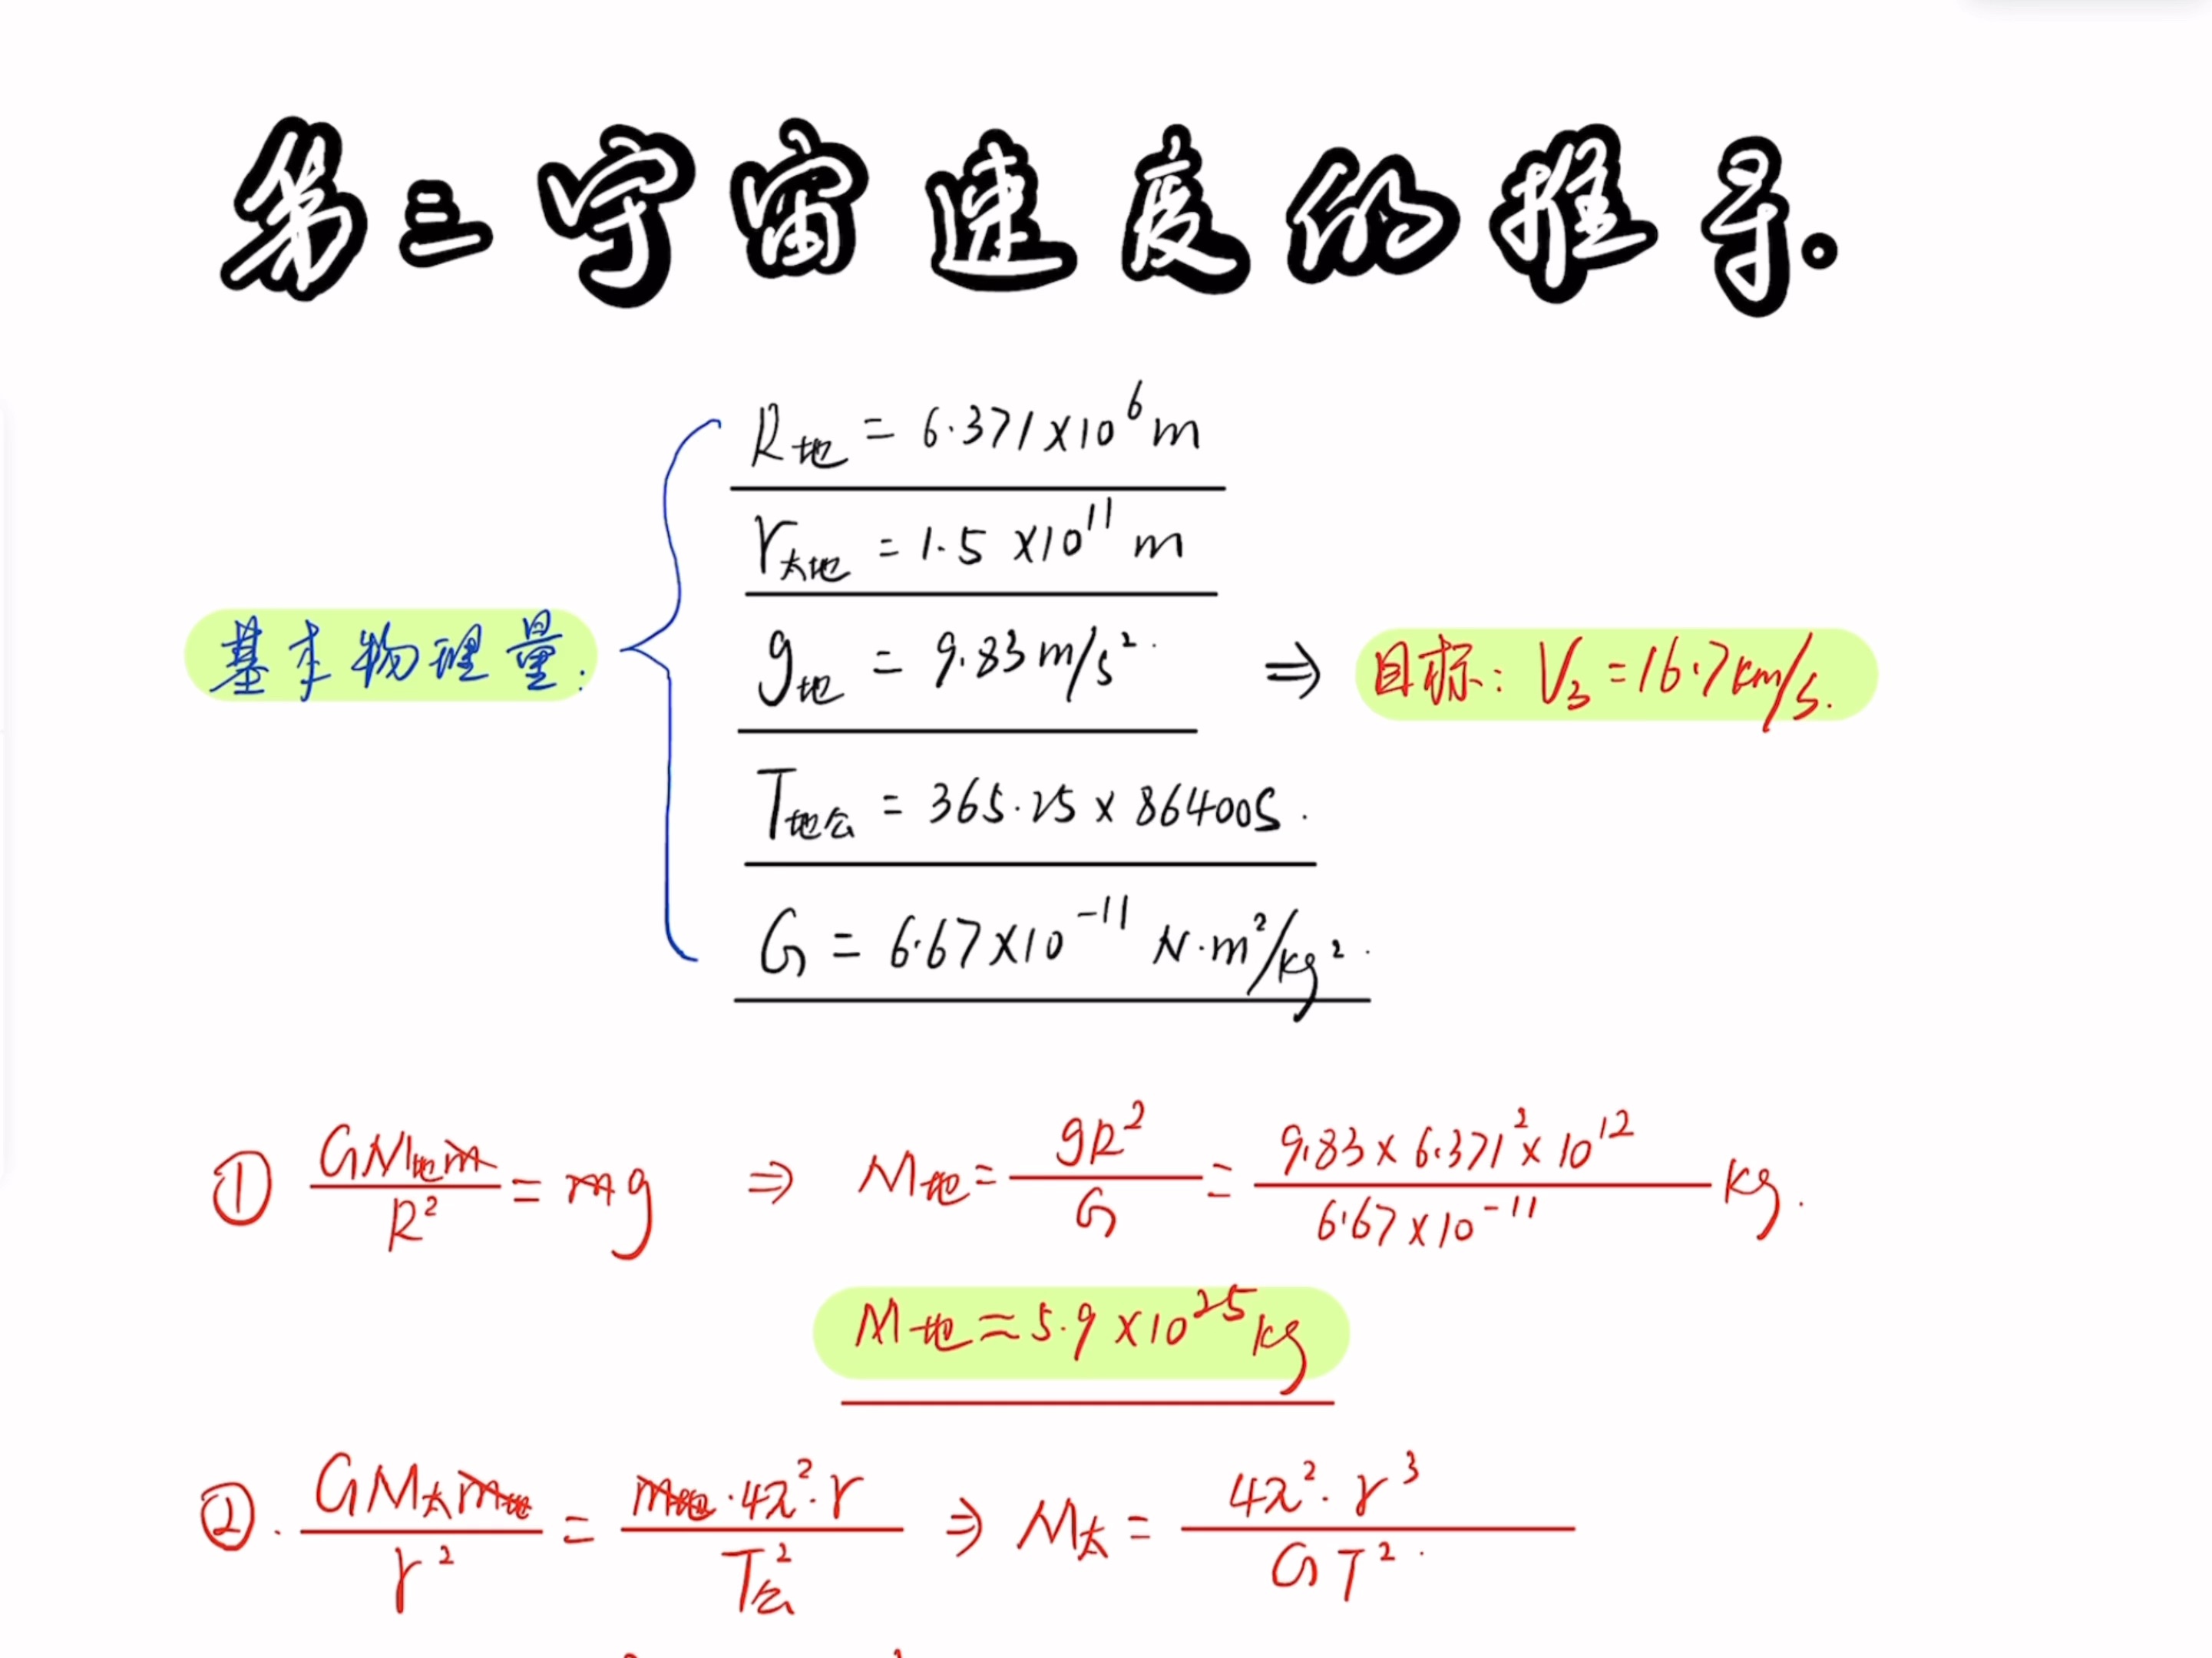 第三宇宙速度的推导.
R地 = 6.371×10^6 m
r太地 = 1.5 ×10^11 m
基本物理量: g地 = 9.83 m/s². ⇒ 目标: V₃ = 16.7 km/s.
T地公 = 365.25 × 86400S.
G = 6.67×10^-11 N·m²/kg².
① GM地m/R² = mg ⇒ M地 = gR²/G = 9.83 × 6.371² × 10^12 / 6.67×10^-11 kg.
M地 ≈ 5.9 ×10^25 kg
②. GM太m地/r² = m地·4π²·r/T公² ⇒ M太 = 4π²·r³/GT².